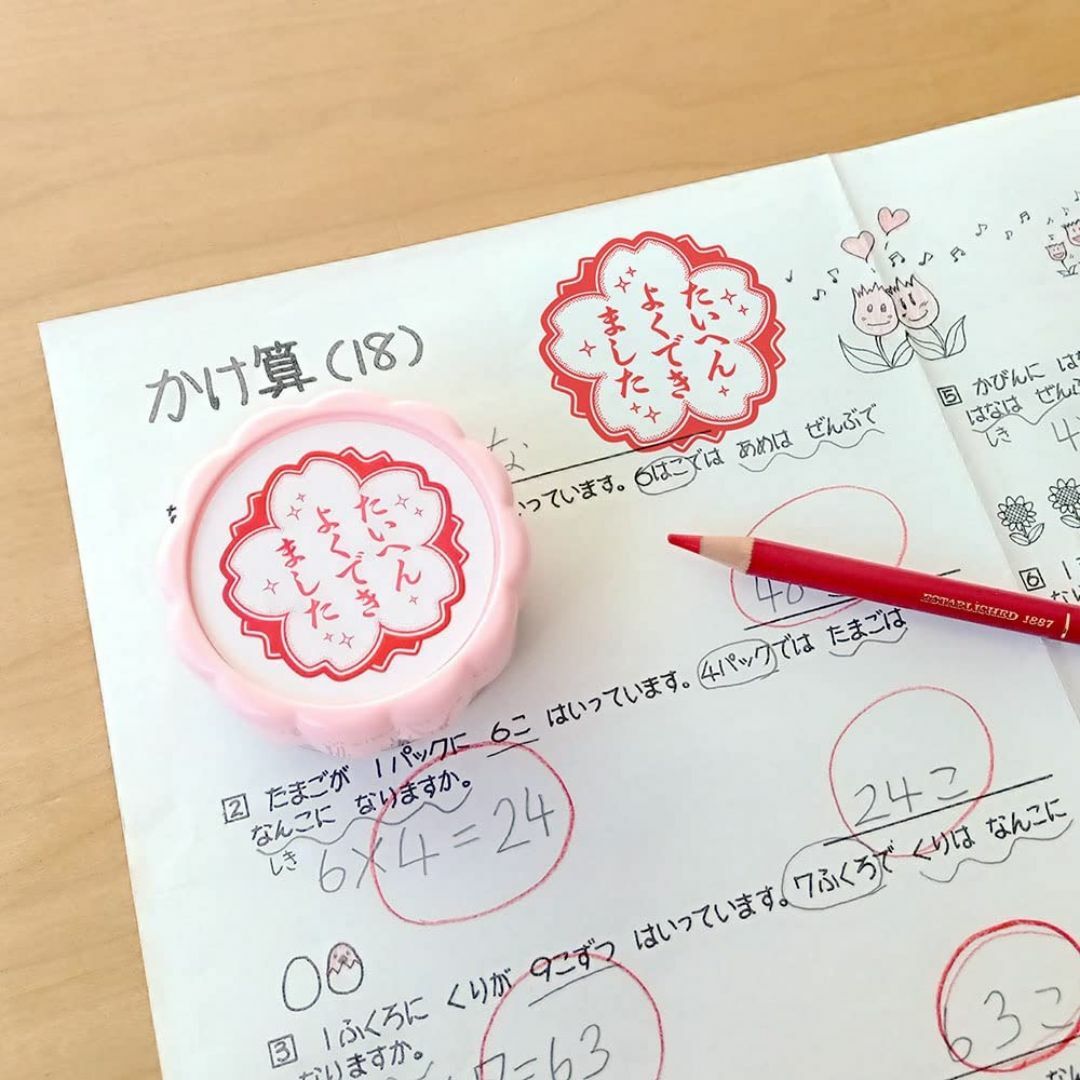 かけ算(18)
たいへん
よくでき
ました
たいへん
よくでき
ました
な
っています。6はこでは あめは ぜんぶで
48
ESTABLISHED 1887
2 たまごが 1パックに 6こ はいっています。4パックでは たまごは
なんこに なりますか。
しき 6×4=24
24こ
3 1ふくろに くりが 9こずつ はいっています。7ふくろで くりは なんこに
なりますか。
7=63
63こ
5 かびんに
はなは ぜん
しき 4
6